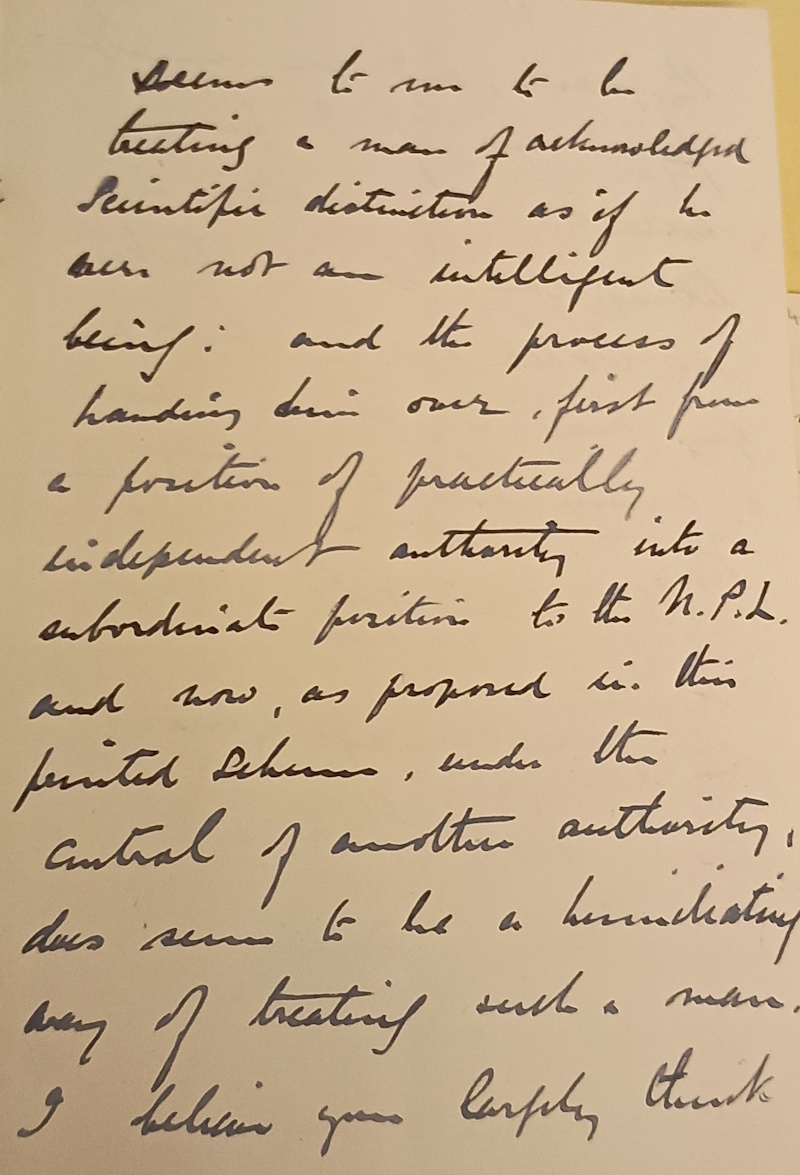 seems to me to be
treating a man of acknowledged
Scientific distinction as if he
were not an intelligent
being: and the process of
handing him over, first from
a position of practically
independent authority into a
subordinate position to the N.P.L.
and now, as proposed in this
printed scheme, under the
control of another authority,
does seem to be a humiliating
way of treating such a man.
I believe you largely think